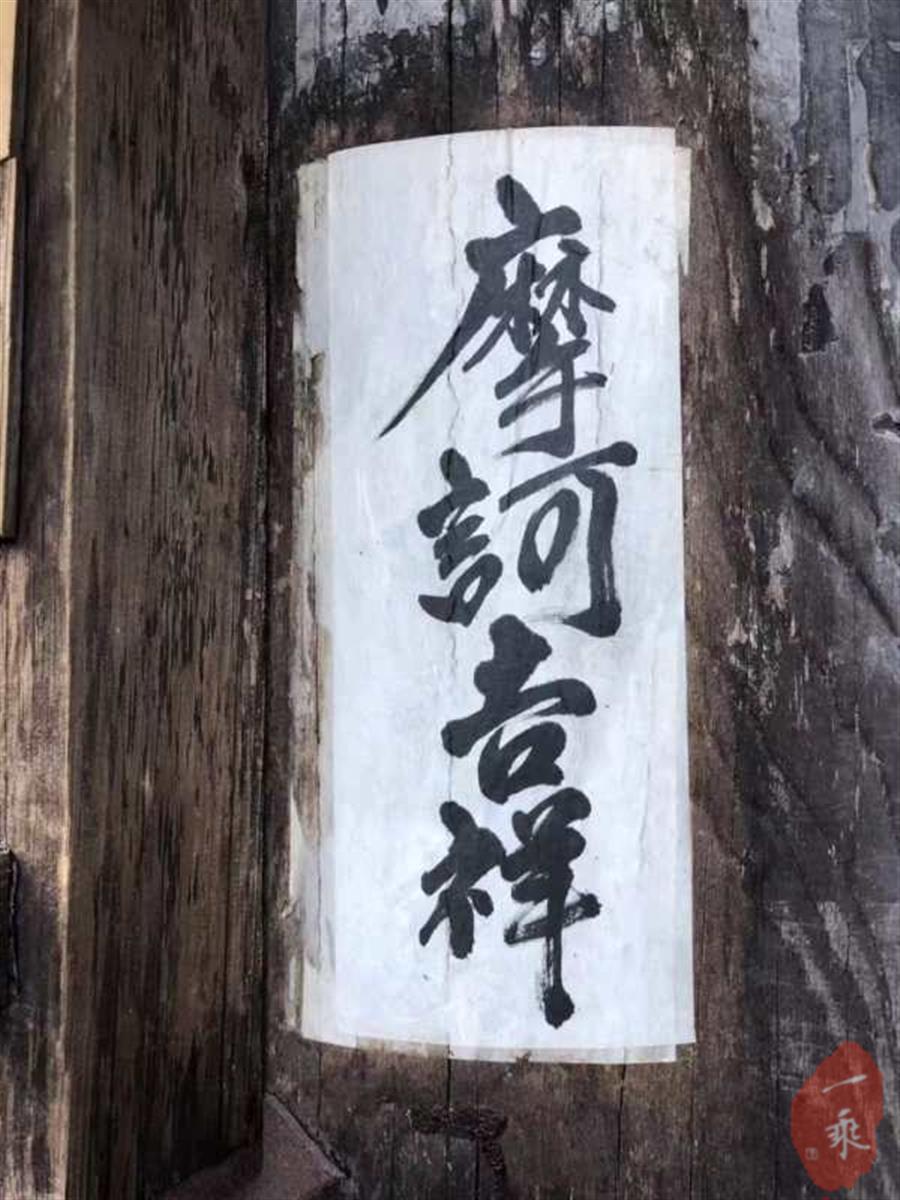 摩訶吉祥
一乘